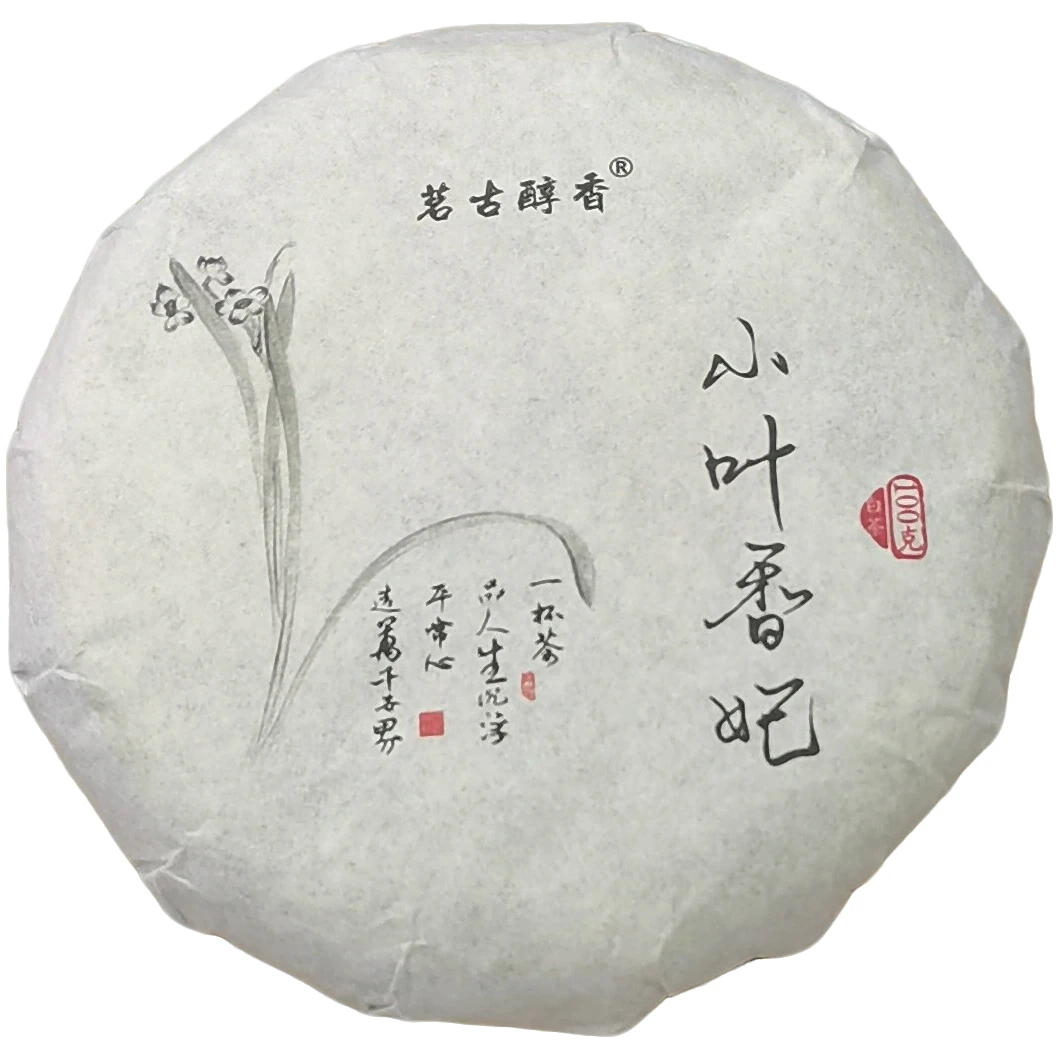 茗古醇香®
小叶香妃
一〇〇克
白茶
一杯茶
品人生沉浮
平常心
造万千世界